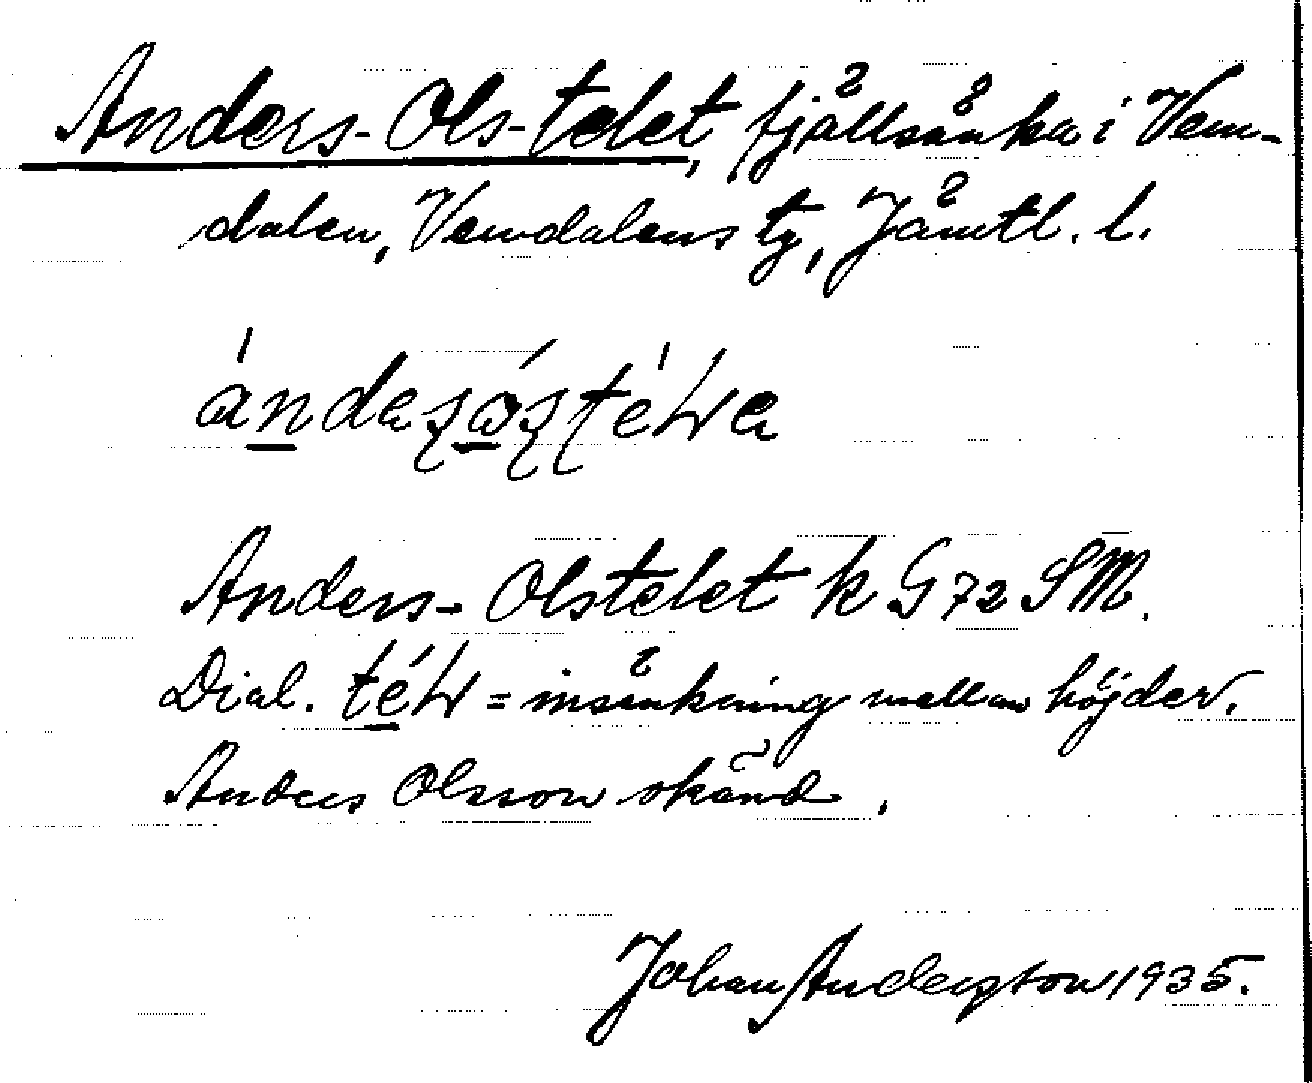 Anders-Ols-telet, fjällsänka i Vem-
dalen, Vemdalens tg, Jämtl. l.
Anders-Olstelet k G 72 SM.
Dial. = insänkning mellan höjder.
Anders Olsson okänd.
Johan Anderston 1935.